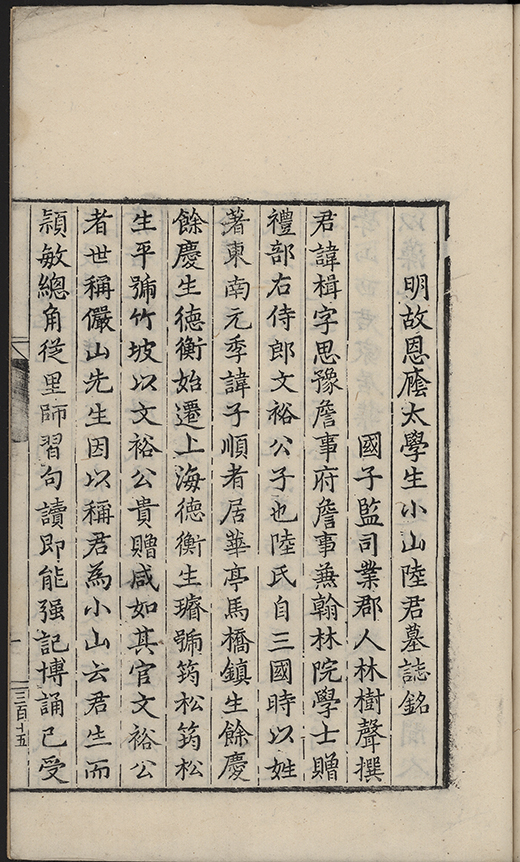 明故恩廕太學生小山陸君墓誌銘
國子監司業郡人林樹聲撰
君諱楫字思豫詹事府詹事兼翰林院學士贈
禮部右侍郎文裕公子也陸氏自三國時以姓
著東南元季諱子順者居華亭馬橋鎮生餘慶
餘慶生德衡始遷上海德衡生璿號筠松筠松
生平號竹坡以文裕公貴贈咸如其官文裕公
者世稱儼山先生因以稱君為小山云君生而
頴敏總角從里師習句讀即能强記博誦已受
三百十五